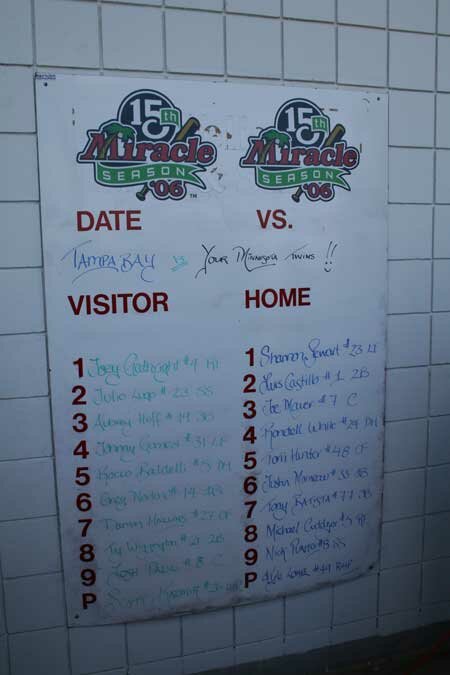 15th Miracle SEASON '06 ™
15th Miracle SEASON '06
DATE VS.
TAMPA BAY vs. Your Minnesota Twins !!
VISITOR HOME
1 Joey Gathright #4
2 Julio Lugo #23 SS
3 Aubrey Huff #19 3B
4 Jonny Gomes #31 LF
5 Rocco Baldelli #5 DH
6 Greg Norton #14
7 Damon #27 CF
8 Ty Wigginton #21 2B
9 Josh Paul #8 C
P
1 Shannon Stewart #23 LF
2 Luis Castillo #1 2B
3 Joe Mauer #7 C
4 Rondell White #24 DH
5 Torii Hunter #48 CF
6 Justin Morneau #33
7 Tony BATISTA #77 3B
8 Michael Cuddyer #5 RF
9 Nick Punto #8 SS
P Kyle Lohse #49 RHP